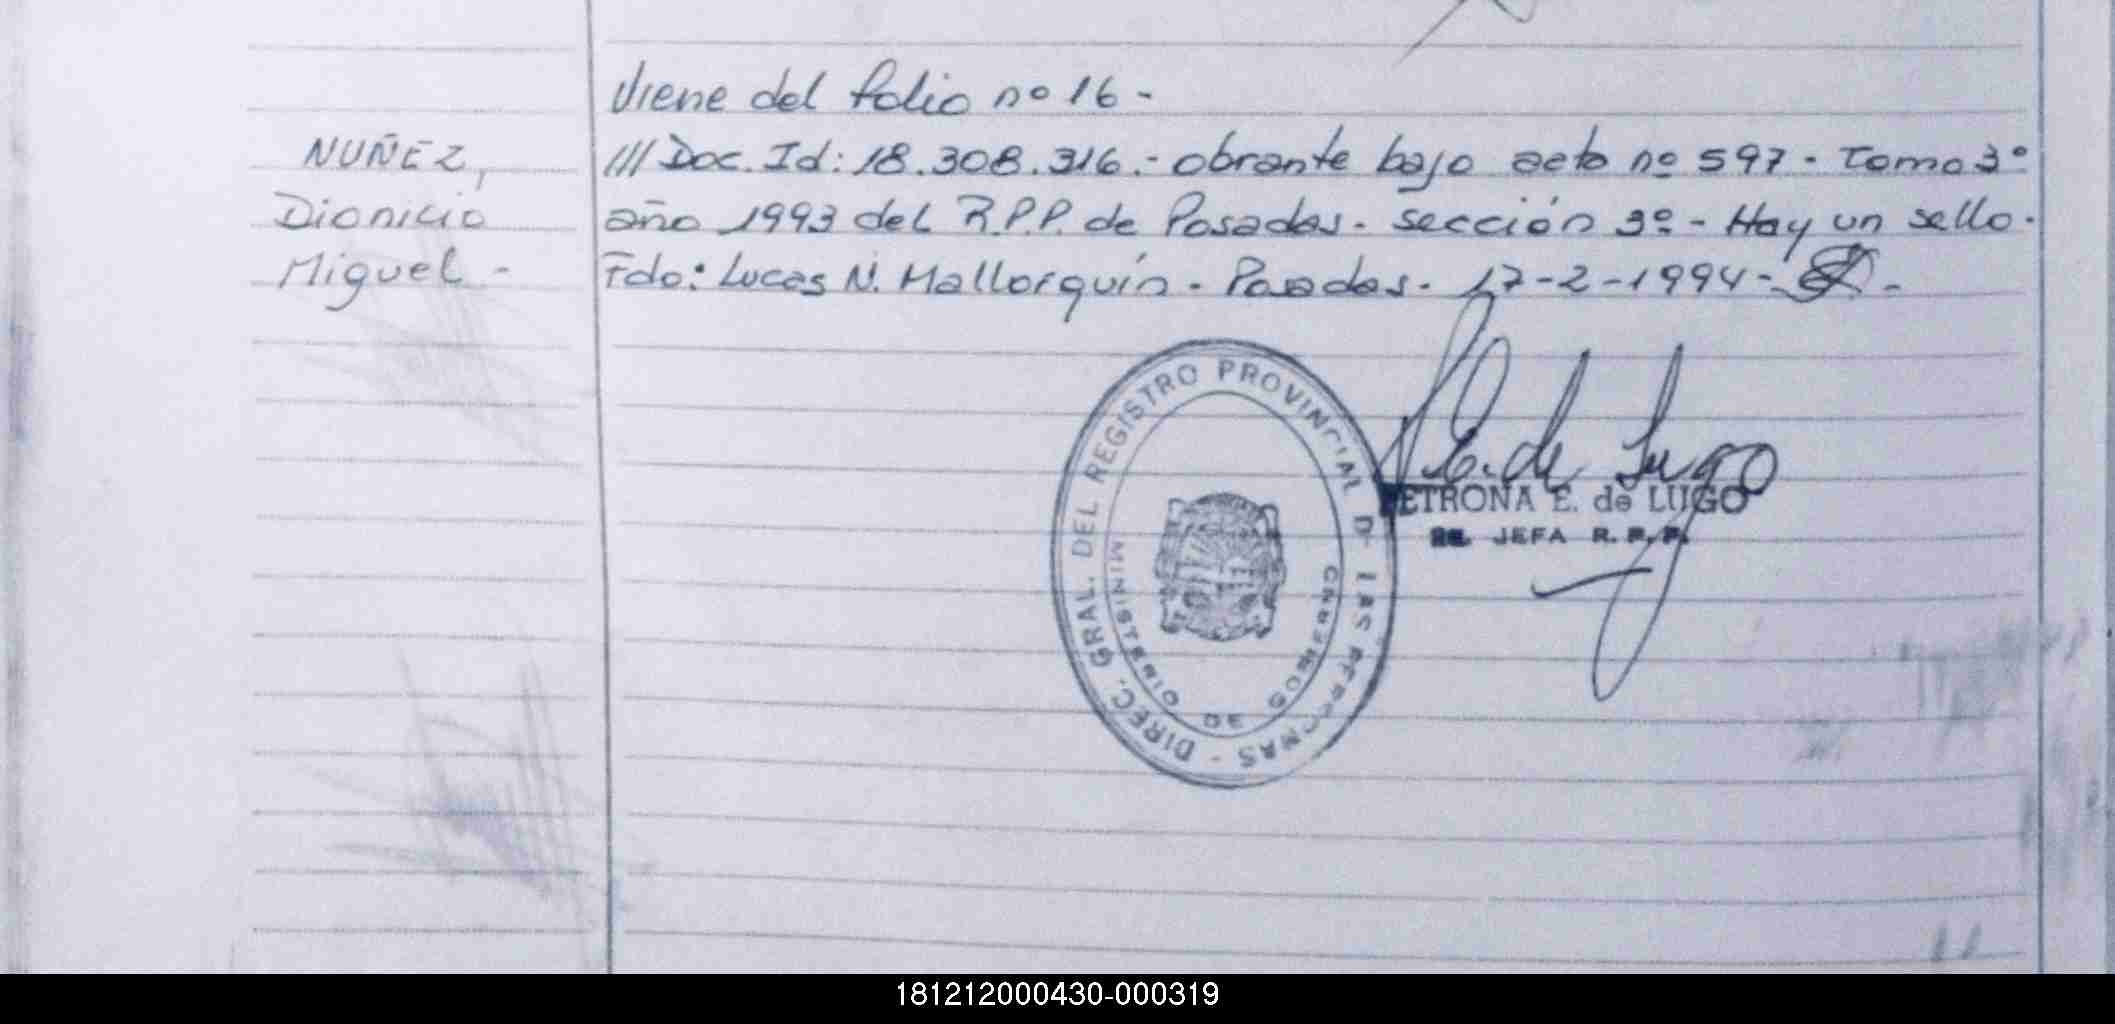 Viene del folio nº 16 -
NUÑEZ,
Dionicio
Miguel -
/// Doc. Id: 18.308.316.- obrante bajo acta nº 597 - Tomo 3º
año 1993 del R.P.P. de Posadas - sección 3º - Hay un sello.
Fdo: Lucas N. Mallorquín - Posadas - 17-2-1994 -
DIREC. GRAL. DEL REGISTRO PROVINCIAL D LAS PERSONAS -
MINISTERIO DE GOBIERNO
E. de Lugo
PETRONA E. de LUGO
JEFA R.P.P.
181212000430-000319